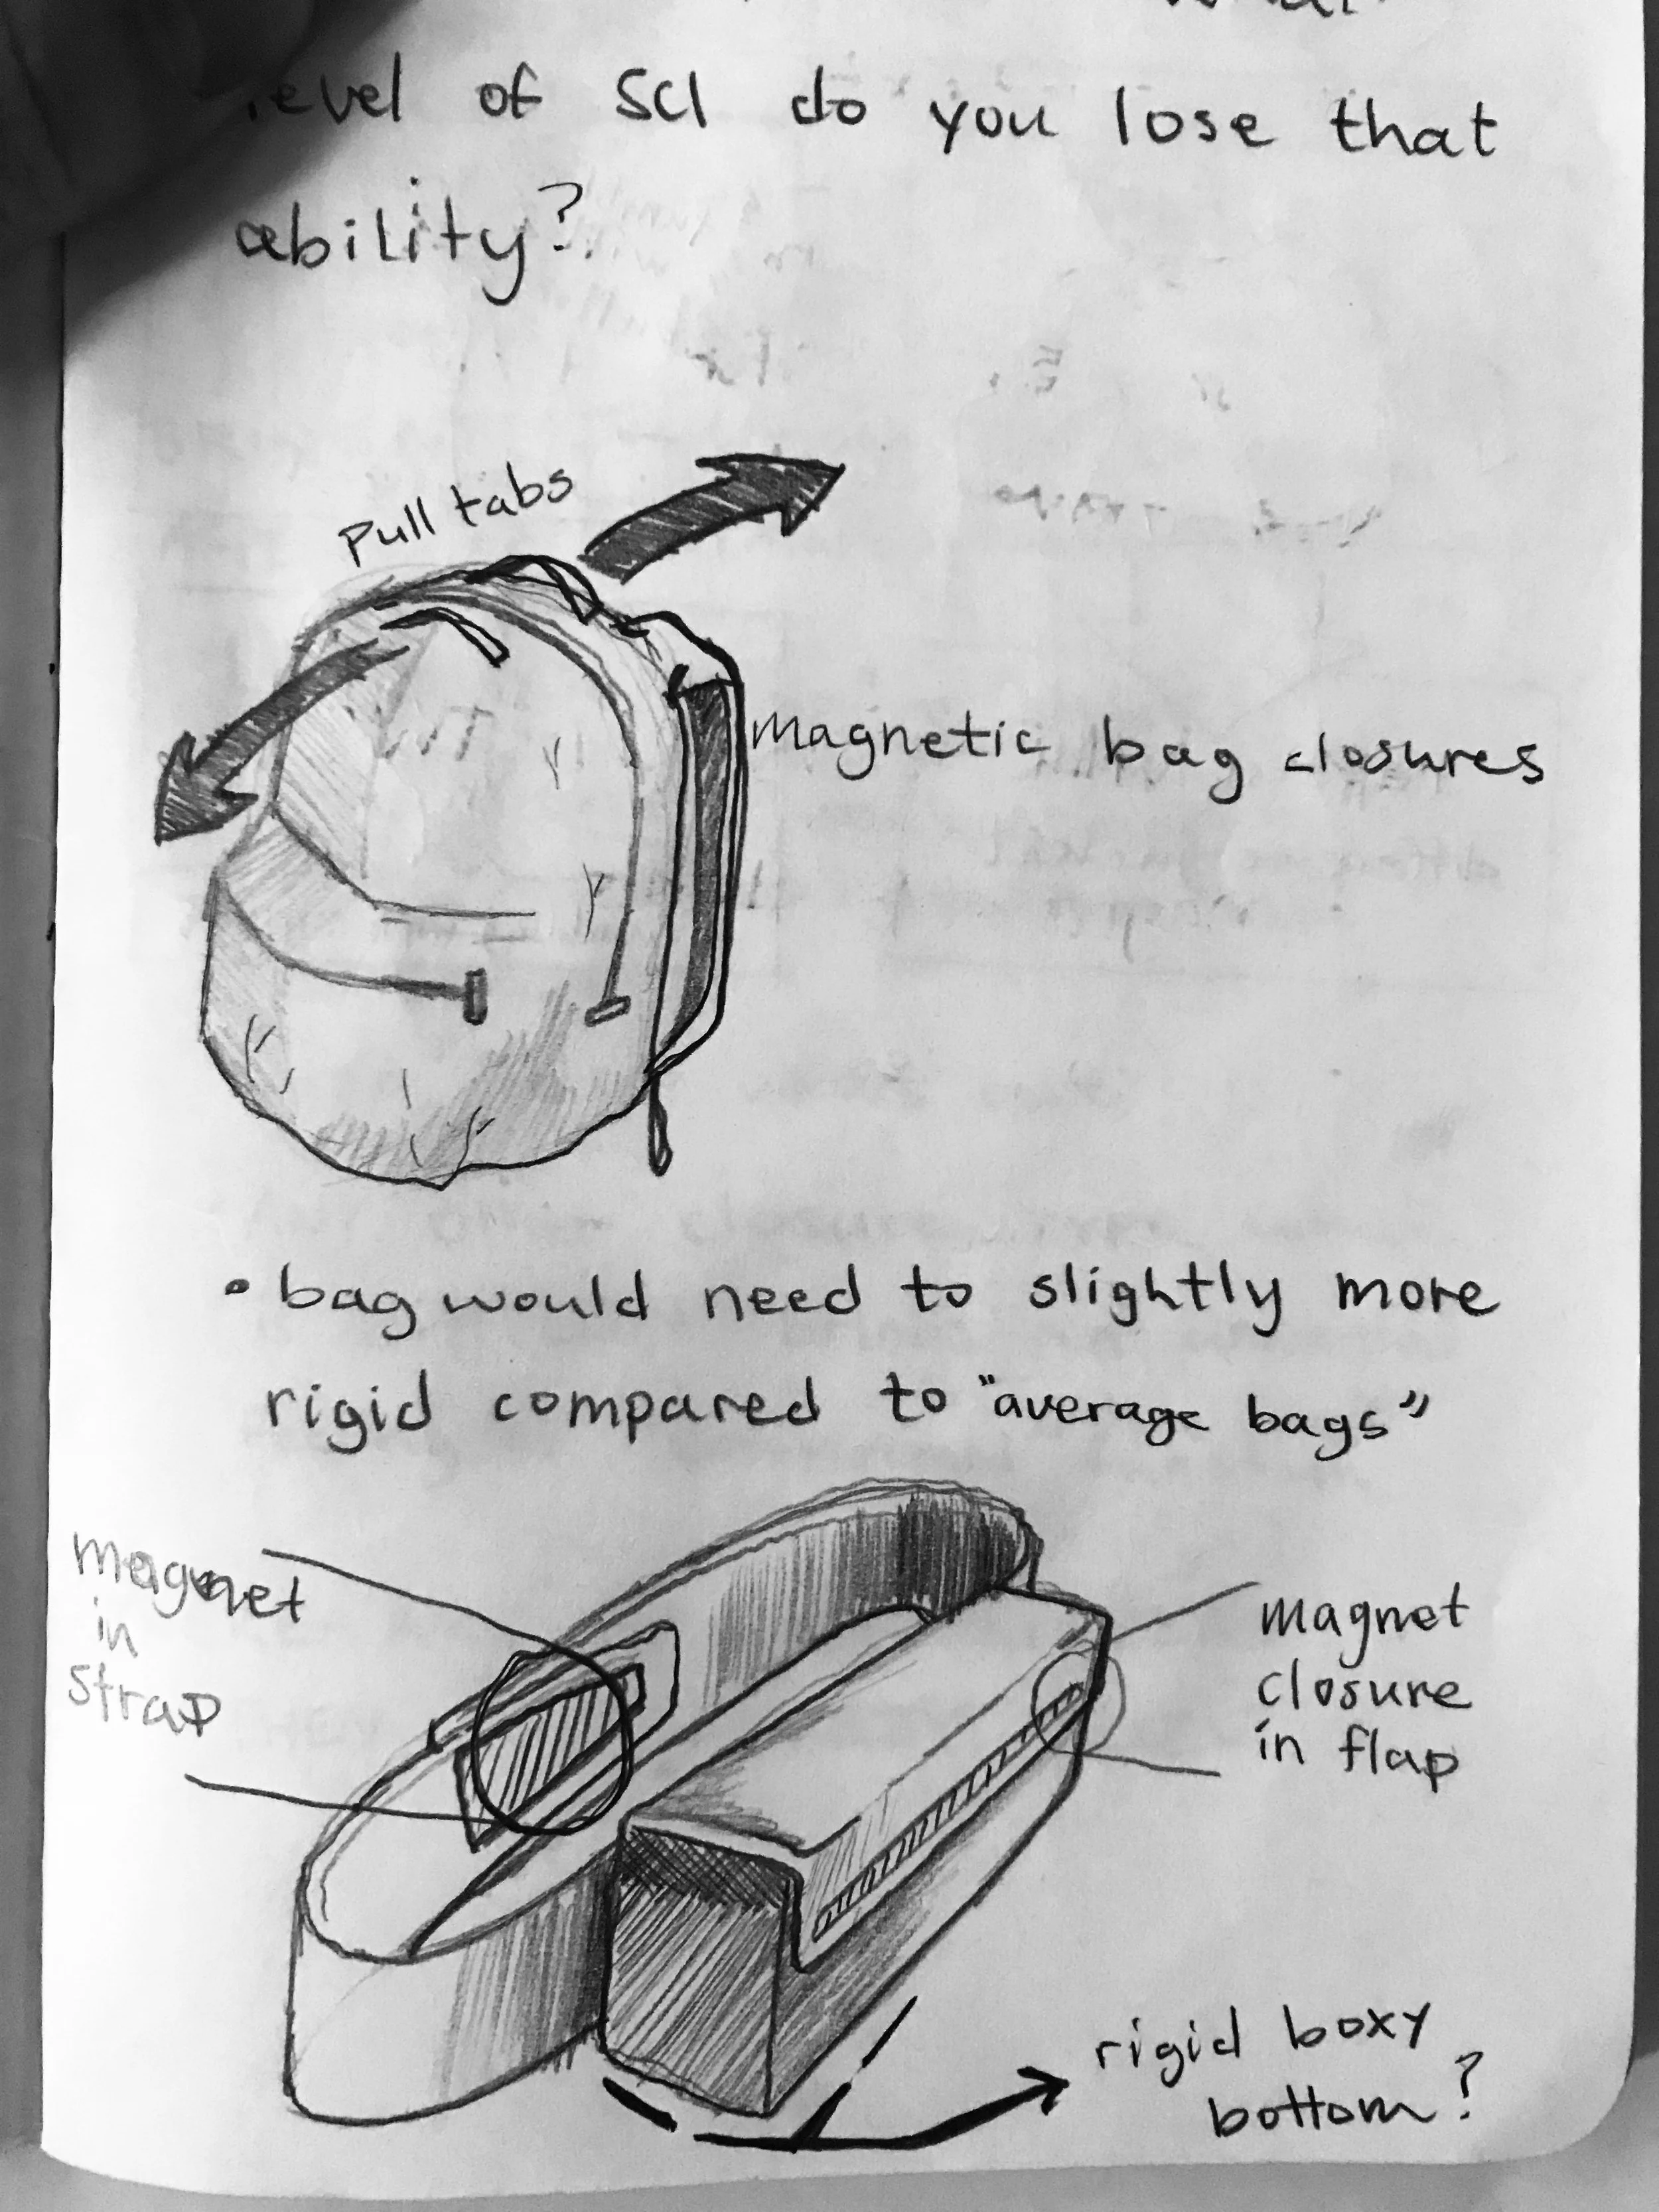 level of SCI do you lose that
ability?
Pull tabs
magnetic bag closures
• bag would need to slightly more
rigid compared to "average bags"
magnet
in
strap
magnet
closure
in flap
rigid boxy
bottom?